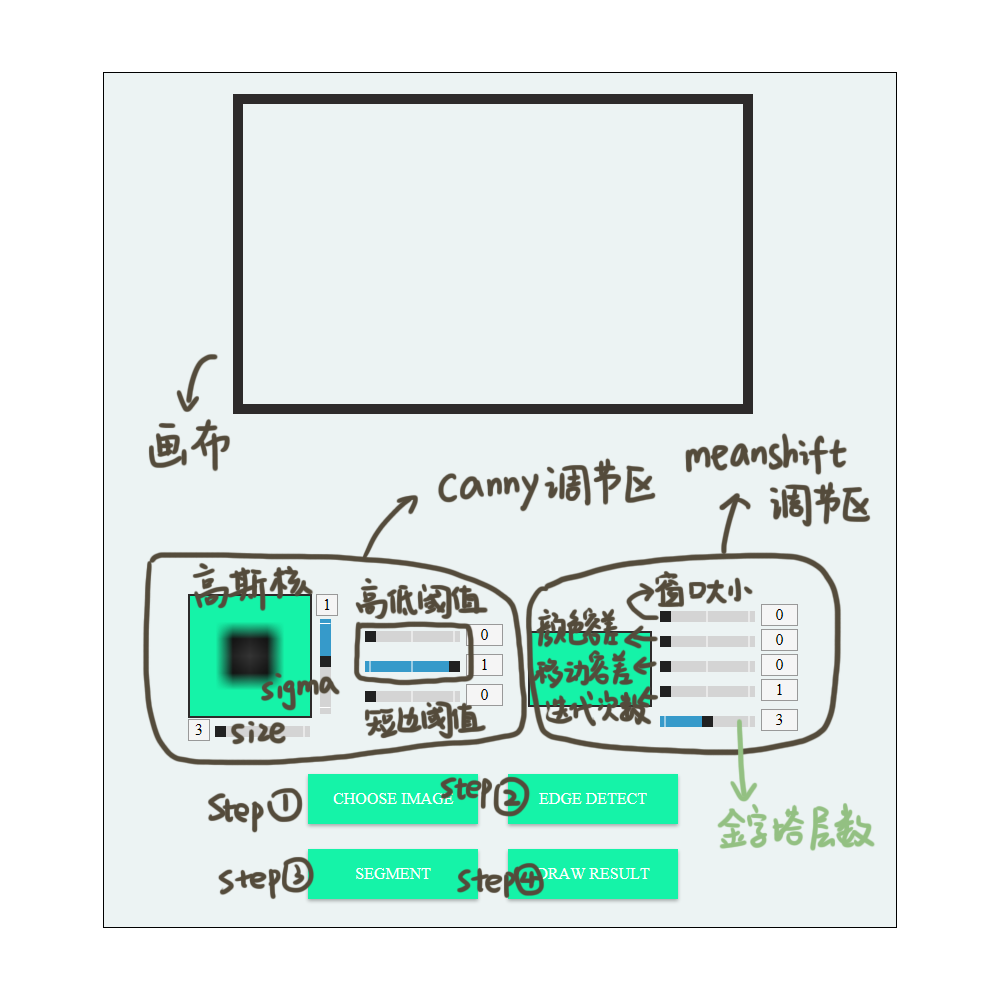 画布
canny调节区
meanshift
调节区
高斯核
1
sigma
3
size
高低阈值
0
1
0
短边阈值
窗口大小
0
颜色容差
0
移动容差
0
迭代次数
1
3
金字塔层数
step①
CHOOSE IMAGE
step②
EDGE DETECT
step③
SEGMENT
step④
DRAW RESULT